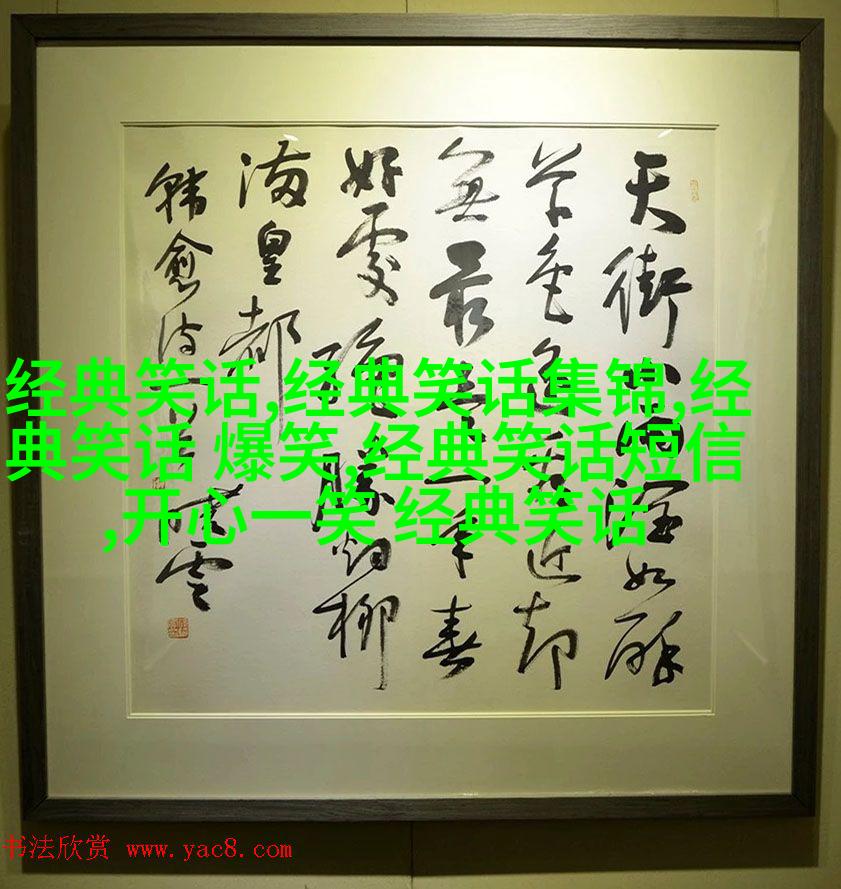 天街小雨潤如酥
草色遙看近却
無最是一年春
好處絕勝烟柳
滿皇都
韓愈詩
经典笑话,经典笑话集锦,经
典笑话 爆笑,经典笑话短信
,开心一笑 经典笑话
书法欣赏 www.yac8.com